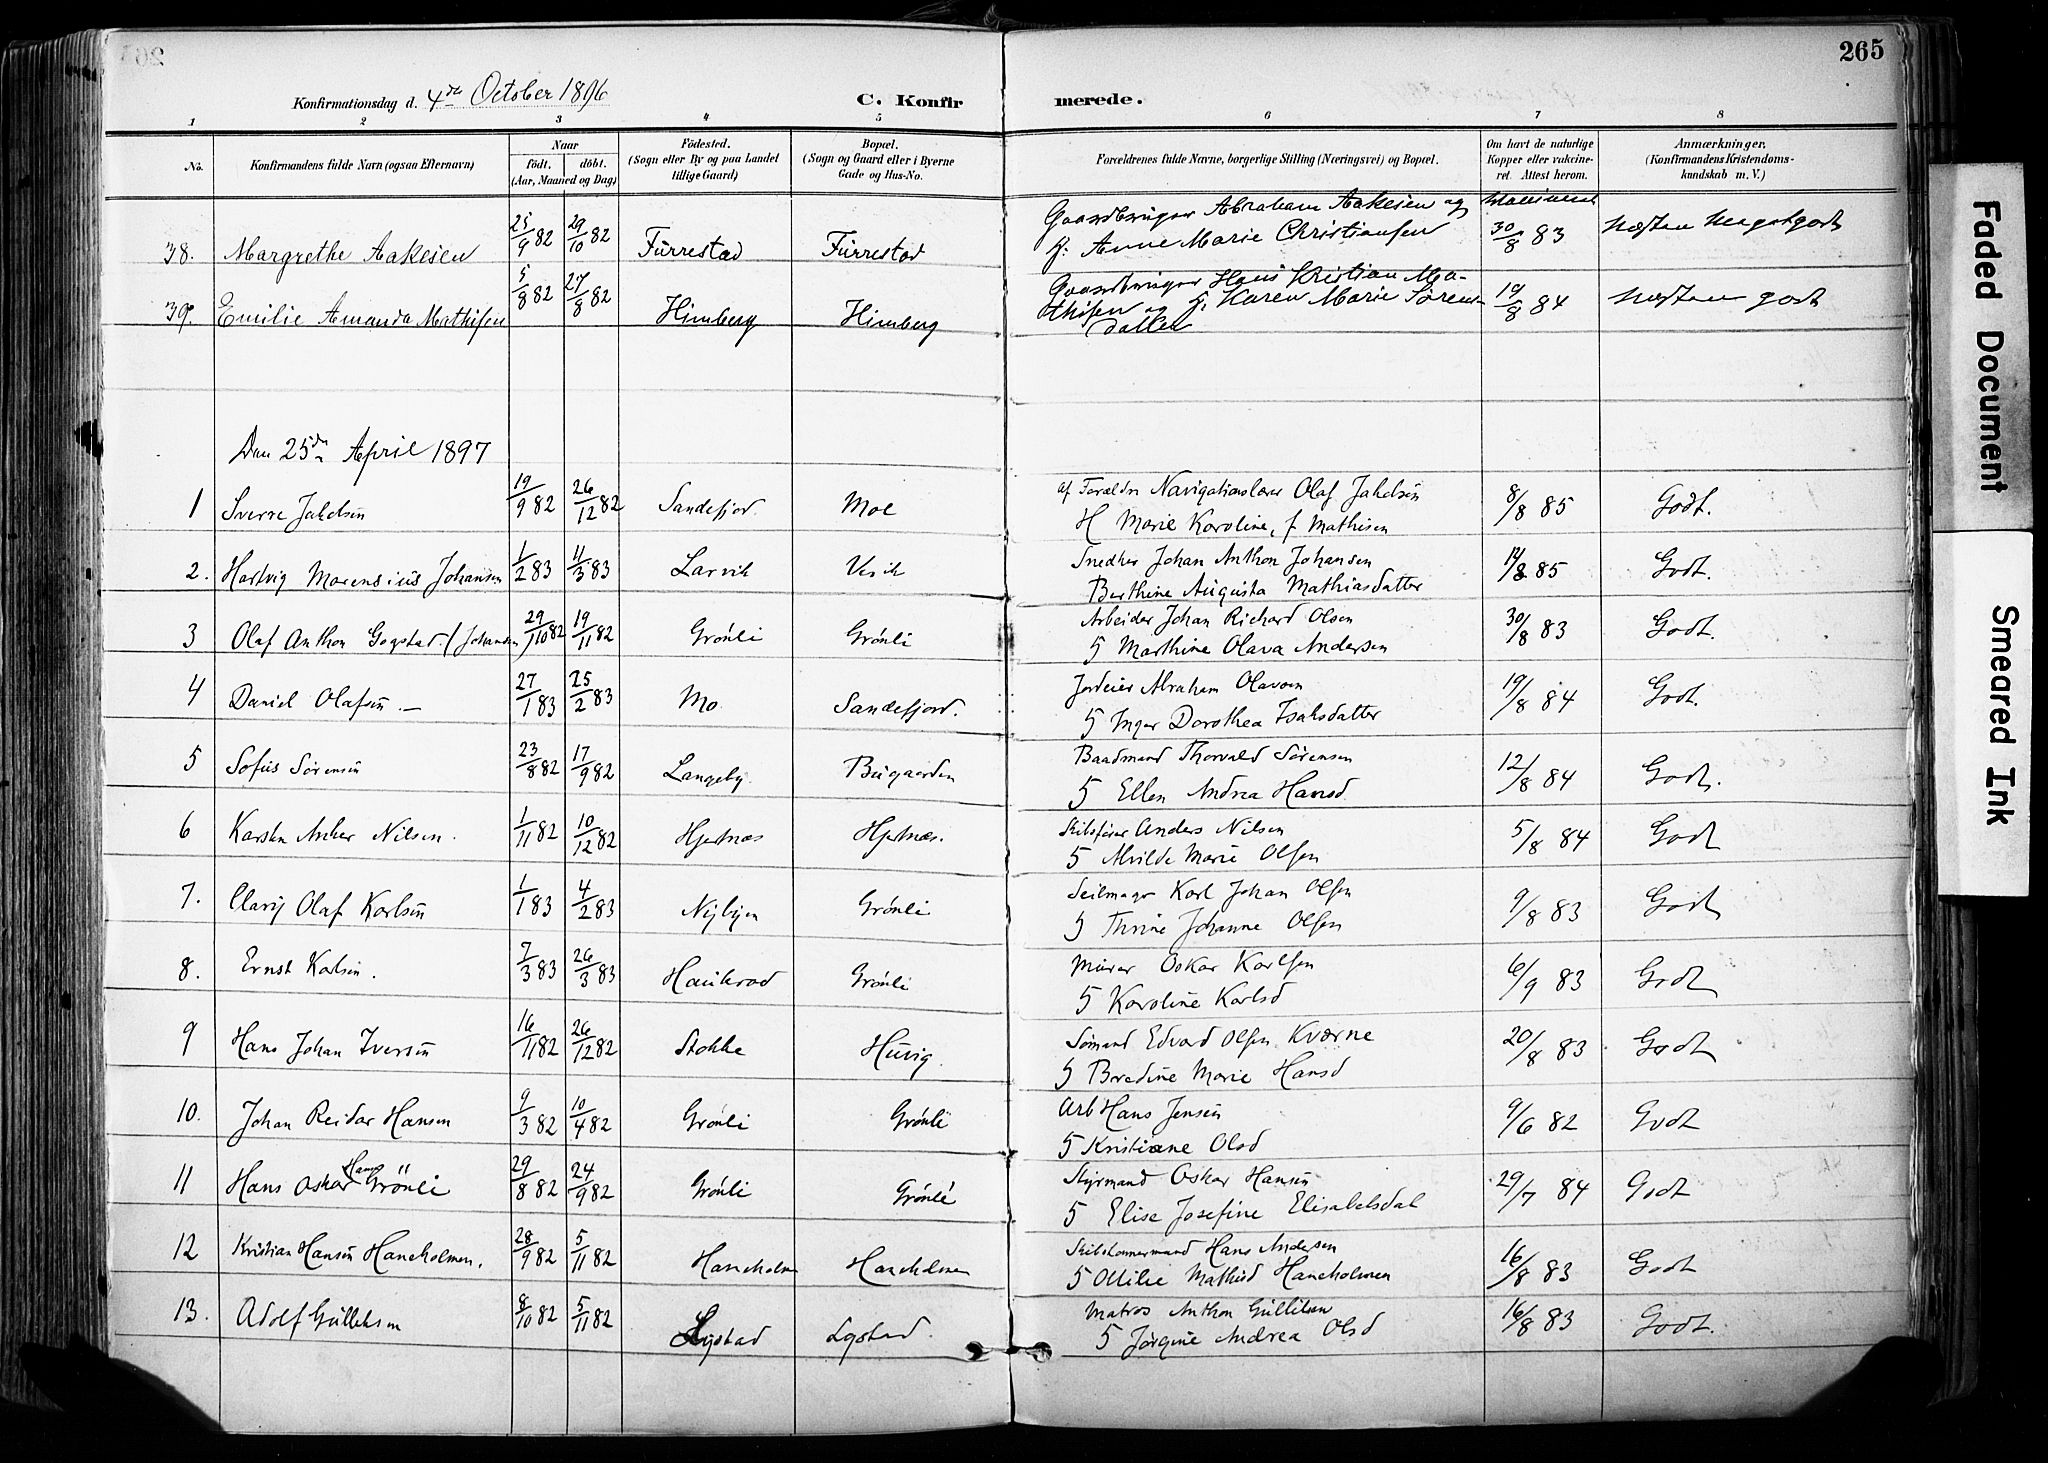 265
Konfirmationsdag d. 4de October 1896
C. Konfirmerede.
1 2 3 4 5 6 7 8
No. Konfirmandens fulde Navn (ogsaa Efternavn) Naar födt. döbt. (Aar, Maaned og Dag) Födested. (Sogn eller By og paa Landet tillige Gaard) Bopæl. (Sogn og Gaard eller i Byerne Gade og Hus-No. Forældrenes fulde Navne, borgerlige Stilling (Næringsvei) og Bopæl. Om havt de naturlige Kopper eller vakcineret. Attest herom. Anmærkninger. (Konfirmandens Kristendomskundskab m. V.)
38. Margrethe Aakesen 25/9 82 29/10 82 Furrestad Furrestad Gaardbruger Abraham Aakesen og
H. Anne Marie Christiansen 30/8 83 Næsten Megetgodt
39. Emilie Amanda Mathisen 5/8 82 27/8 82 Himberg Himberg Gaardbruger Hans Kristian Ma-
thisen og H. Karen Marie Sørens-
datter 19/8 84 Næsten godt
Den 25de April 1897
1 Sverre Jakelsen 19/9 82 26/12 82 Sandefjord Moe af Forældre Navigationslærer Olaf Jakelsen
H Marie Karoline, f Mathisen 8/8 85 Godt.
2. Hartvig Marensius Johansen 1/2 83 11/3 83 Larvik Vesik Snedker Johan Anthon Johansen
Berthine Augusta Mathiasdatter 14/8 85 Godt.
3 Olaf Anthon Gogstad (Johansen) 29/10 82 19/11 82 Grönli Grönli Arbeider Johan Richard Olsen
H Marthine Olava Andersen 30/8 83 Godt.
4 Daniel Olafsen 27/1 83 25/2 83 Mo Sandefjord. Jordeier Abraham Olavsen
H Inger Dorothea Isaksdatter 19/8 84 Godt.
5 Sofus Sørensen 23/8 82 17/9 82 Langeby Bugaarden Baadmand Thorvald Sørensen
H Ellen Andrea Hansd. 12/8 84 Godt.
6 Karsten Anker Nilsen. 1/11 82 10/12 82 Hjertnæs Hjertnæs. Skibsfører Anders Nilsen
H Alvilde Marie Olsen 5/8 84 Godt
7. Olaf Karlsen 1/1 83 4/2 83 Nybyen Grönli Seilmager Karl Johan Olsen
H Thrine Johanne Olsen 9/8 83 Godt
8. Ernst Karlsen. 7/3 83 26/3 83 Haukerød Grönli Murer Oskar Karlsen
H Karoline Karlsd 6/9 83 Godt
9 Hans Johan Iversen 16/11 82 26/12 82 Stokke Huvig. Sömand Edvard Olsen Kværne
H Bredine Marie Hansd 20/8 83 Godt
10. Johan Reidar Hansen 9/3 82 10/4 82 Grönli Grönli Arb Hans Jensen
H Kristiane Olsd 9/6 82 Godt
11 Hans Oskar Hans Grönli 29/8 82 24/9 82 Grönli Grönli Styrmand Oskar Hansen
H Elise Josefine Elisabetsdat 29/7 84 Godt
12 Kristian Hansen Haneholmen. 28/9 82 5/11 82 Haneholm Haneholmen Skibstømmermand Hans Andersen
H Ottilie Mathisd Haneholmen 16/8 83 Godt
13. Adolf Gulliksen 8/10 82 5/11 82 Lystad Lystad. Matros Anthon Gulliksen
H Jørgine Andrea Olsd 16/8 83 Godt.
Faded Document
Smeared Ink